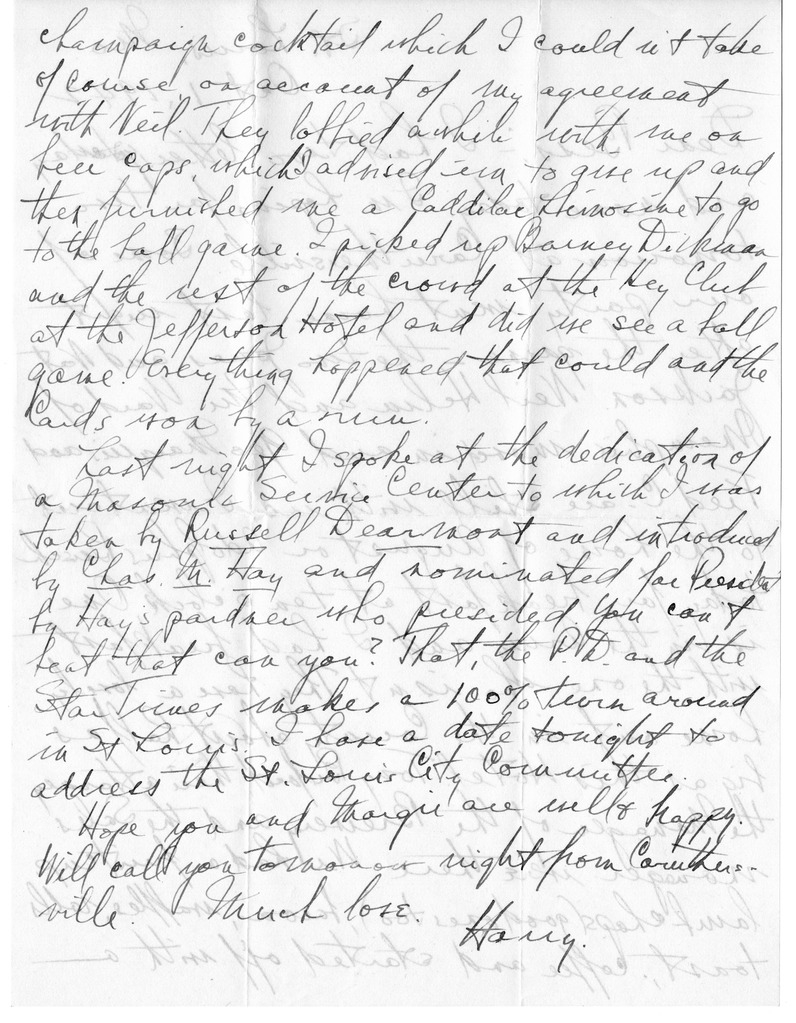 champaign cocktail which I could n't take
of course, on account of my agreement
with Neil. They lobbied awhile with me on
beer caps, which I advised 'em to give up and
then furnished me a Caddilac Limosine to go
to the ball game. I picked up Barney Dickman
and the rest of the crowd at the Key Club
at the Jefferson Hotel and did we see a ball
game. Everything happened that could and the
Cards won by a run.
Last night I spoke at the dedication of
a Masonic Service Center to which I was
taken by Russell Dearmont and introduced
by Chas. M. Hay and nominated for President
by Hay's partner who presided. You can't
beat that can you? That, the P.D. and the
Star Times makes a 100% turn around
in St Louis. I have a date tonight to
address the St. Louis City Committee.
Hope you and Margie are well & happy.
Will call you tomorrow night from Caruthers-
ville. Much love.
Harry.